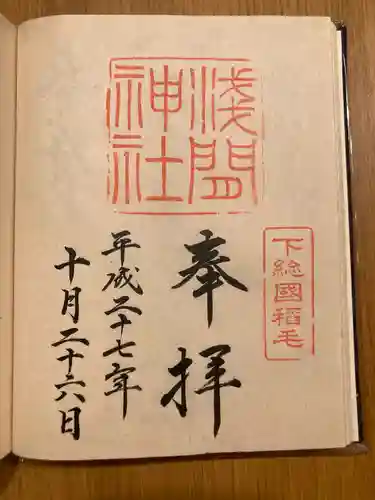 下総國稲毛
奉拝
浅間
神社
平成二十七年
十月二十六日